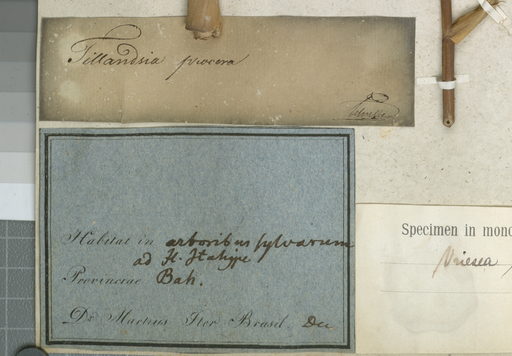 Tillandsia procera
Habitat in arboribus sylvarum
ad Fl. Itahype
Provinciae Bah.
Dr. Martius Iter Brasil. Dec
Specimen in mono
Vriesea